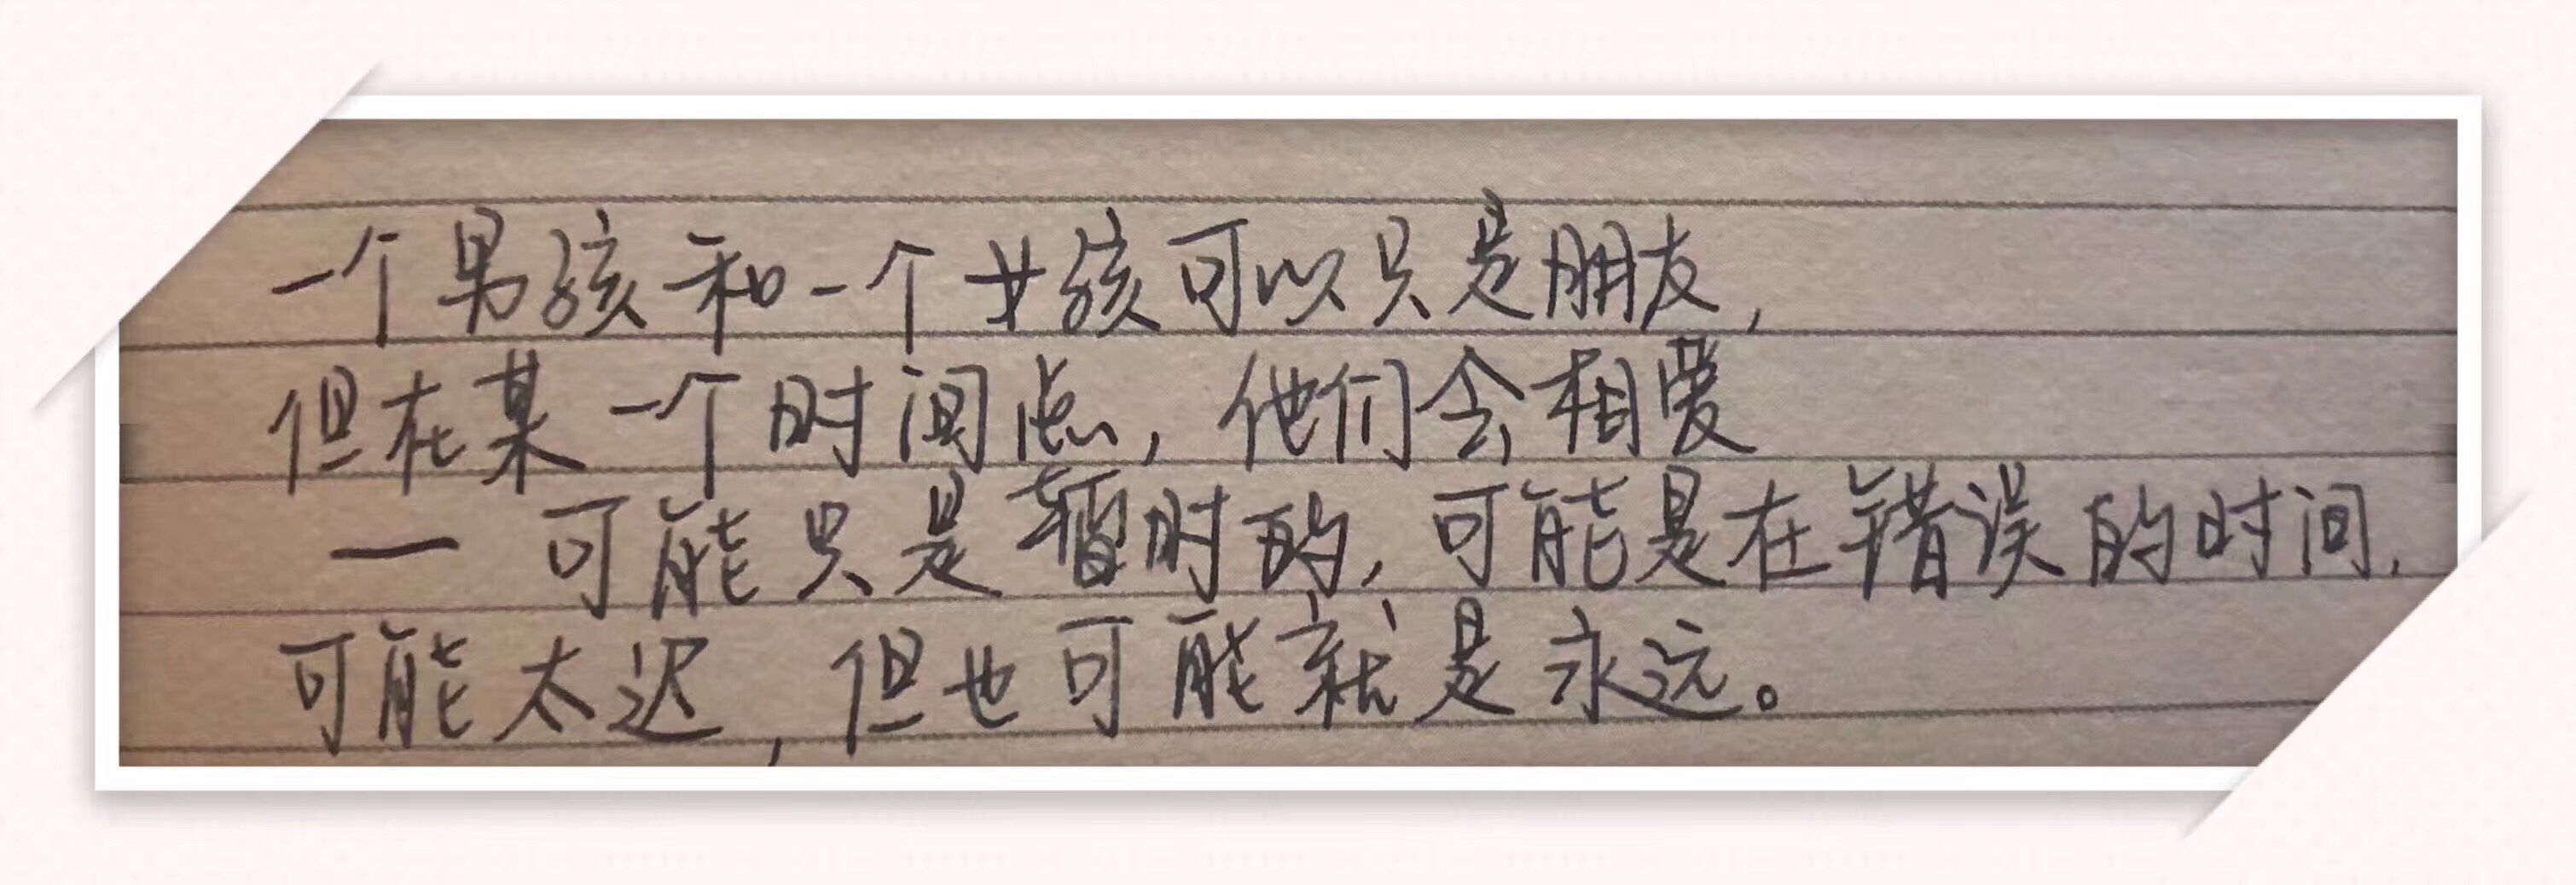 一个男孩和一个女孩可以只是朋友,
但在某一个时间点,他们会相爱
— 可能只是暂时的,可能是在错误的时间,
可能太迟,但也可能就是永远。